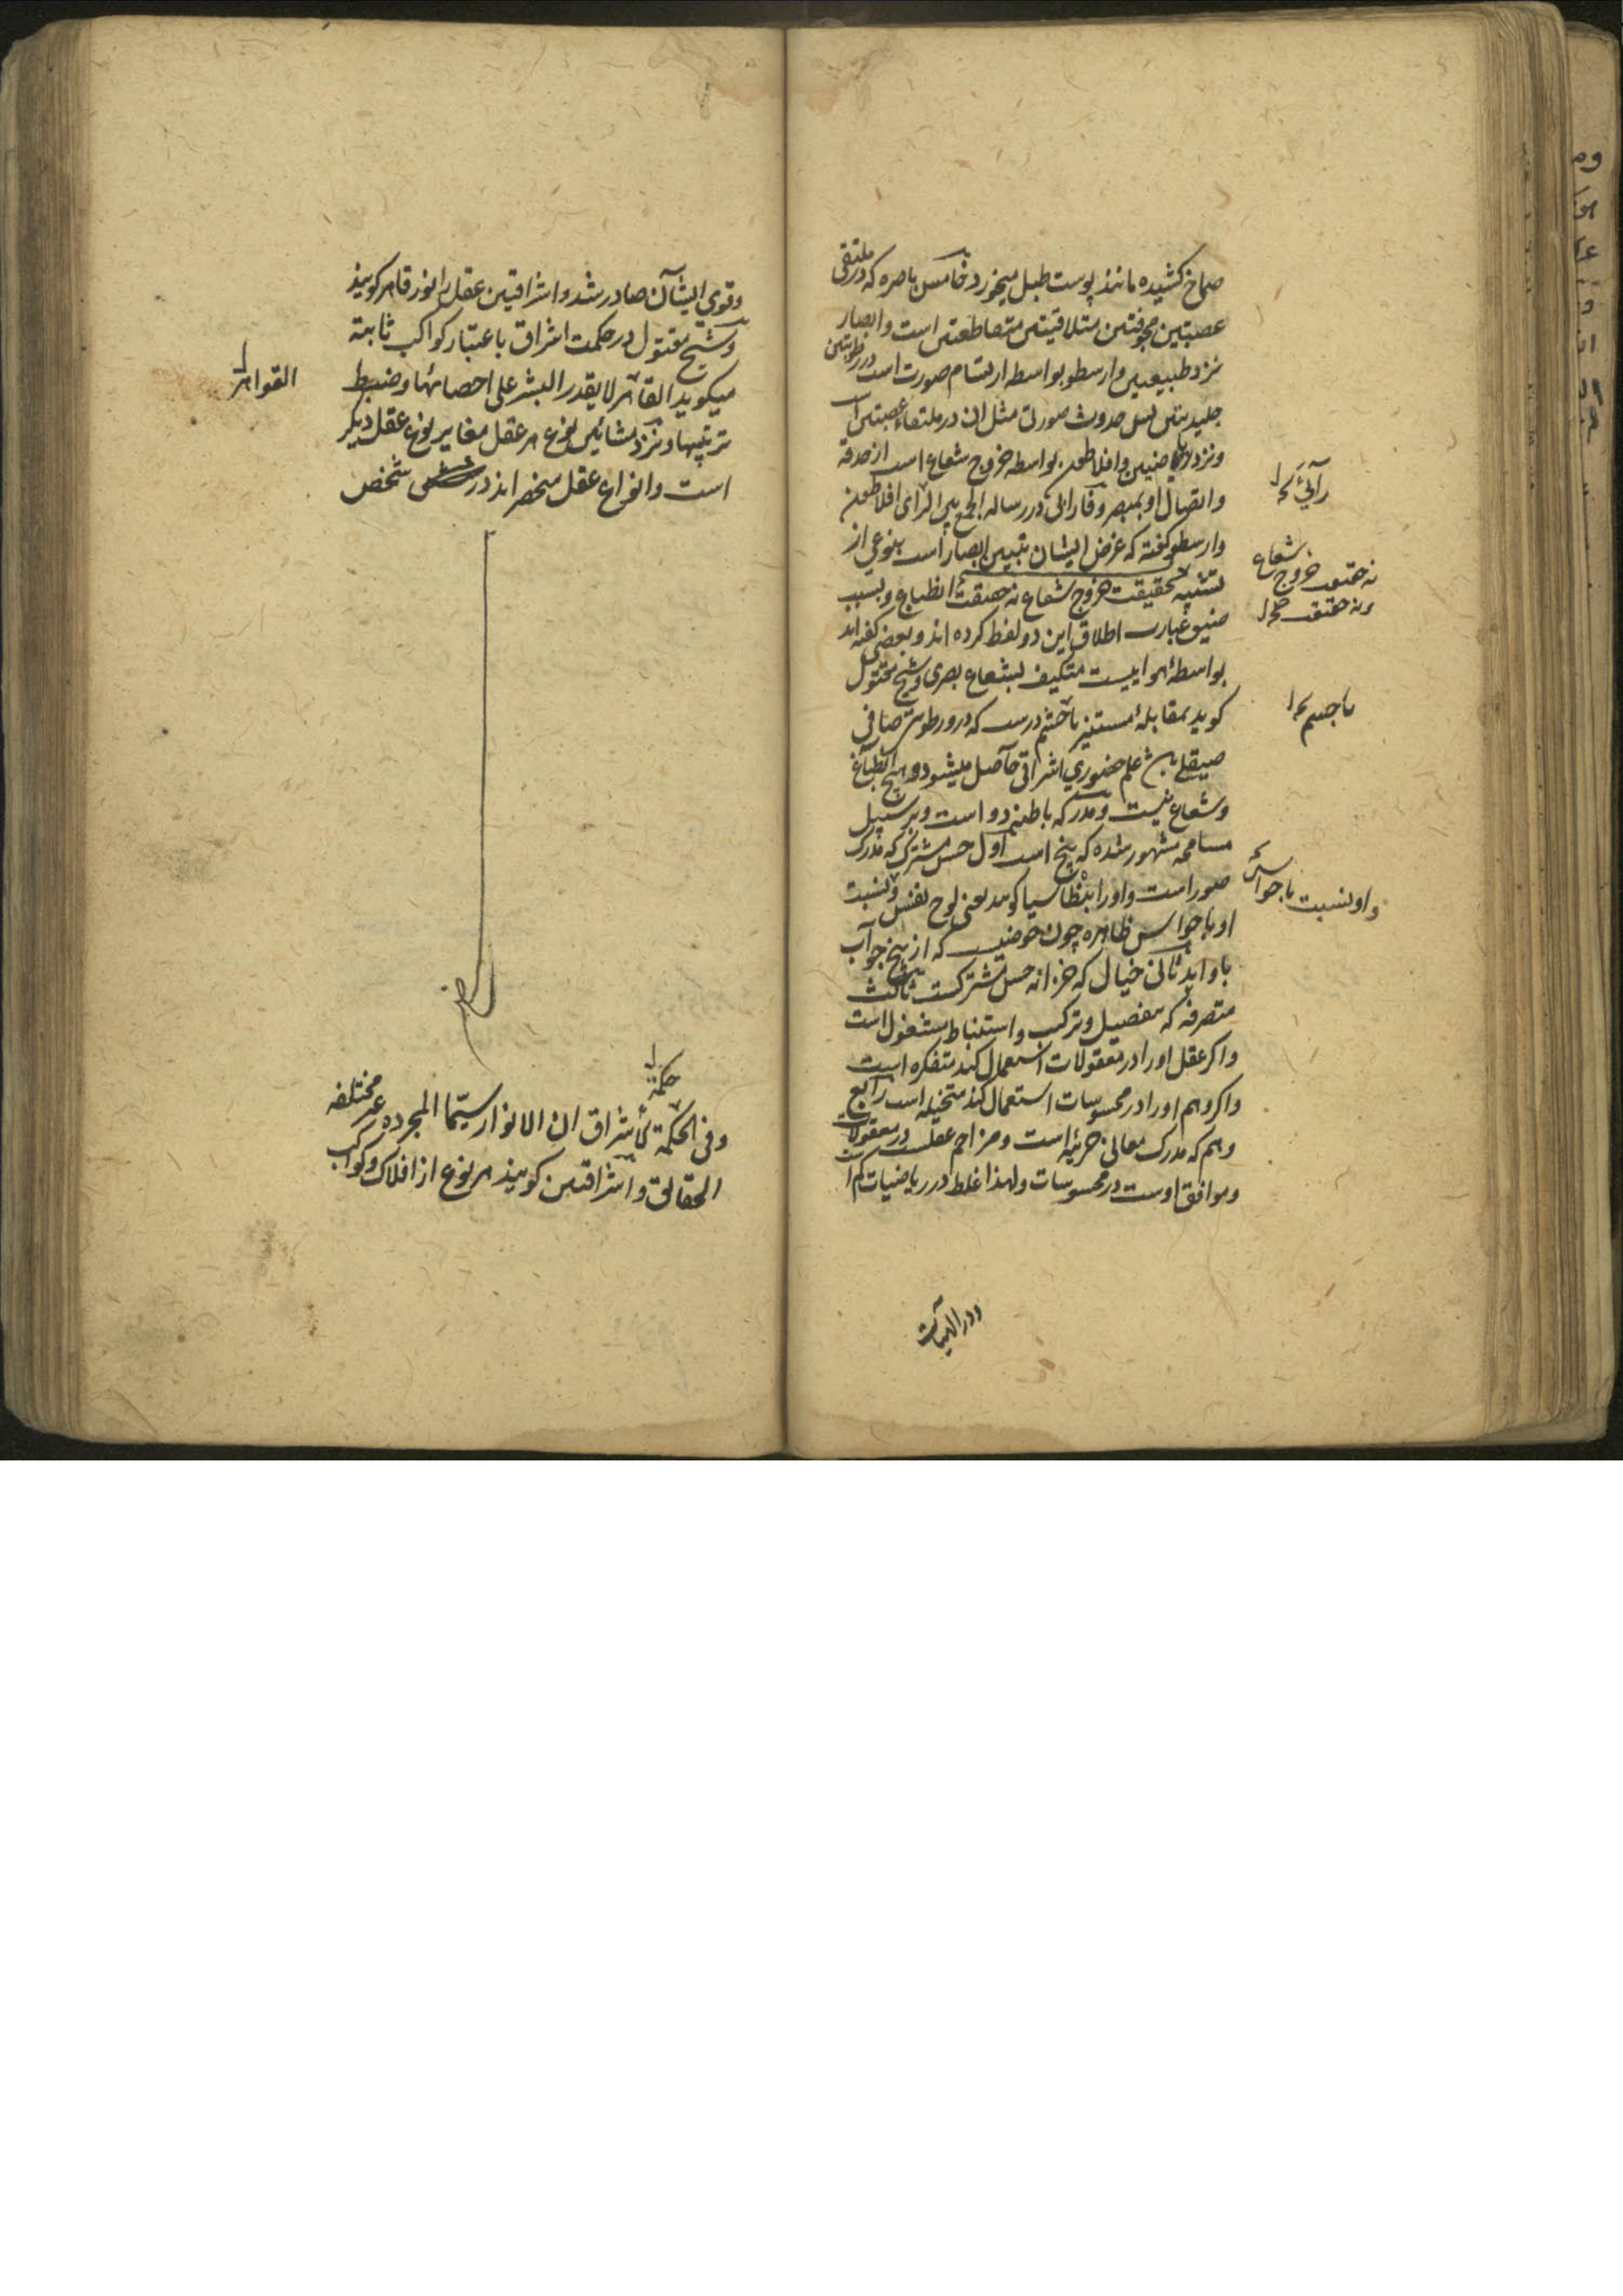 صماخ کشیده مانند پوست طبل میخورد خامس باصره که در ملتقی
عصبتین مجوفتین متلاقیتین متقاطعتین است و ابصار
نزد طبیعیین و ارسطو بواسطه ارتسام صورت است در رطوبتین
جلیدیتین پس حدوث صورت مثل ان در ملتقاء عصبتین
و نزد ریاضیین و افلاطون بواسطه خروج شعاع است از حدقه
و اتصال او بمبصر و فارابی در رساله الجمع بین الرای افلاطون
و ارسطو گفته که غرض ایشان تبیین ابصار است بنوعی از
تشبیه حقیقت خروج شعاع نه حقیقت انطباع و بسبب
ضیق عبارت اطلاق این دو لفظ کرده اند و بعضی گفته اند
بواسطهٔ هواییست متکیف بشعاع بصری و شیخ مقتول
کوید بمقابلهٔ مستنیر با چشم درست که درو رطوبت صافی
صیقلی علم حضوری اشراقی حاصل میشود و هیچ انطباع
و شعاع نیست و مدرکه باطنه دو است و بر سبیل
مسامحه مشهور شده که پنج است اول حس مشترک که مدرک
صور است و او را بنطاسیا کویند یعنی لوح نفس و نسبت
او با حواس ظاهره چون حوضیست که از پنج جو آب
باو اید ثانی خیال که خزانه حس مشترکست ثالث
متصرفه که بتفصیل و ترکیب و استنباط مشغول است
و اکر عقل او را در معقولات استعمال کند متفکره است
و اکر وهم او را در محسوسات استعمال کند متخیله است رابع
وهم که مدرک معانی جزئیه است و مزاحم عقلست در معقولات
و موافق اوست در محسوسات و لهذا غلط در ریاضیات کم
رأیی
نه حقیقت خروج شعاع
و نه حقیقت
با جسم
و او نسبت با حواس
و در الهیات
و قوی ایشان صادر شد و اشراقیین عقل را نور قاهر کویند
و شیخ مقتول در حکمت اشراق باعتبار کواکب ثابته
میکوید القاهر لا یقدر البشر علی احصائها و ضبط
ترتیبها و نزد مشائین نوع هر عقل مغایر نوع عقل دیکر
است و انواع عقل منحصر اند در شخص
القواهر
حکمة
و فی الحکمة لأشراق ان الانوار سیما المجرده غیر مختلفه
الحقائق و اشراقیین کویند هر نوع از افلاک و کواکب